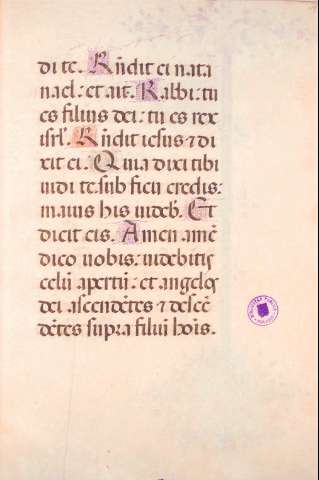 di te. Rñdit ei nata
nael: et ait. Rabbi: tu
es filius dei: tu es rex
isrl'. Rñdit iesus ⁊ di
xit ei. Quia dixi tibi
uidi te sub ficu credis:
maius his uideb'. Et
dicit eis. Amen amē
dico uobis: uidebitis
celū apertū: et angelos
dei ascendētes ⁊ descē
dētes supra filiū hoīs.